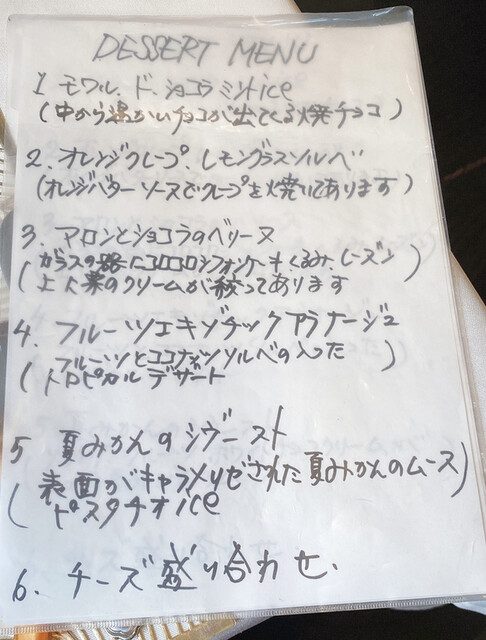 DESSERT MENU
1 モワル. ド. ショコラ ミントice
(中から温かいチョコが出てくる焼チョコ)
2. オレンジクレープ. レモングラスソルベ
(オレンジバターソースでクレープを焼いてあります)
3. マロンとショコラのベリーヌ
(ガラスの器にコロコロシフォンケーキ、くるみ、レーズン
上に栗のクリームが絞ってあります)
4. フルーツエキゾチックアラナージュ
(フルーツとココナッツソルベの入った
トロピカルデザート)
5 夏みかんのシブースト
(表面がキャラメリゼされた夏みかんのムース)
ピスタチオice
6. チーズ盛り合わせ.